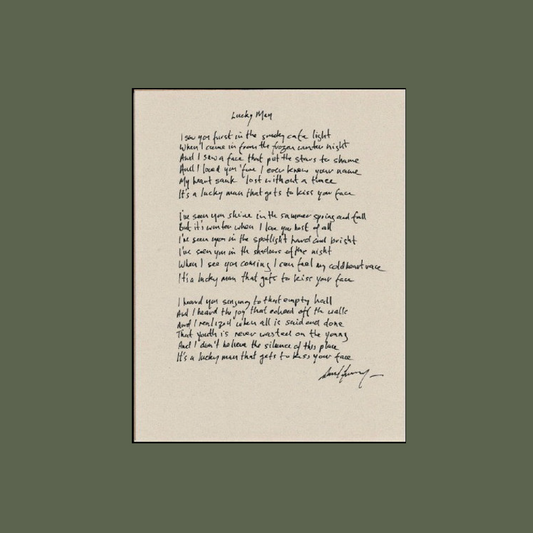 Lucky Man
I saw you first in the smoky cafe light
When I came in from the frozen winter night
And I saw a face that put the stars to shame
And I loved you 'fore I ever knew your name
My heart sank lost without a trace
It's a lucky man that gets to kiss your face
I've seen you shine in the summer spring and fall
But it's winter when I love you best of all
I've seen you in the spotlight hard and bright
I've seen you in the shadows of the night
When I see you coming I can feel my cold heart race
It's a lucky man that gets to kiss your face
I heard you singing to that empty hall
And I heard the joy that echoed off the walls
And I realized when all is said and done
That youth is never wasted on the young
And I don't believe the silence of this place
It's a lucky man that gets to kiss your face